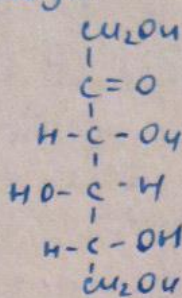 CH₂OH
C=O
H-C-OH
HO-C-H
H-C-OH
CH₂OH